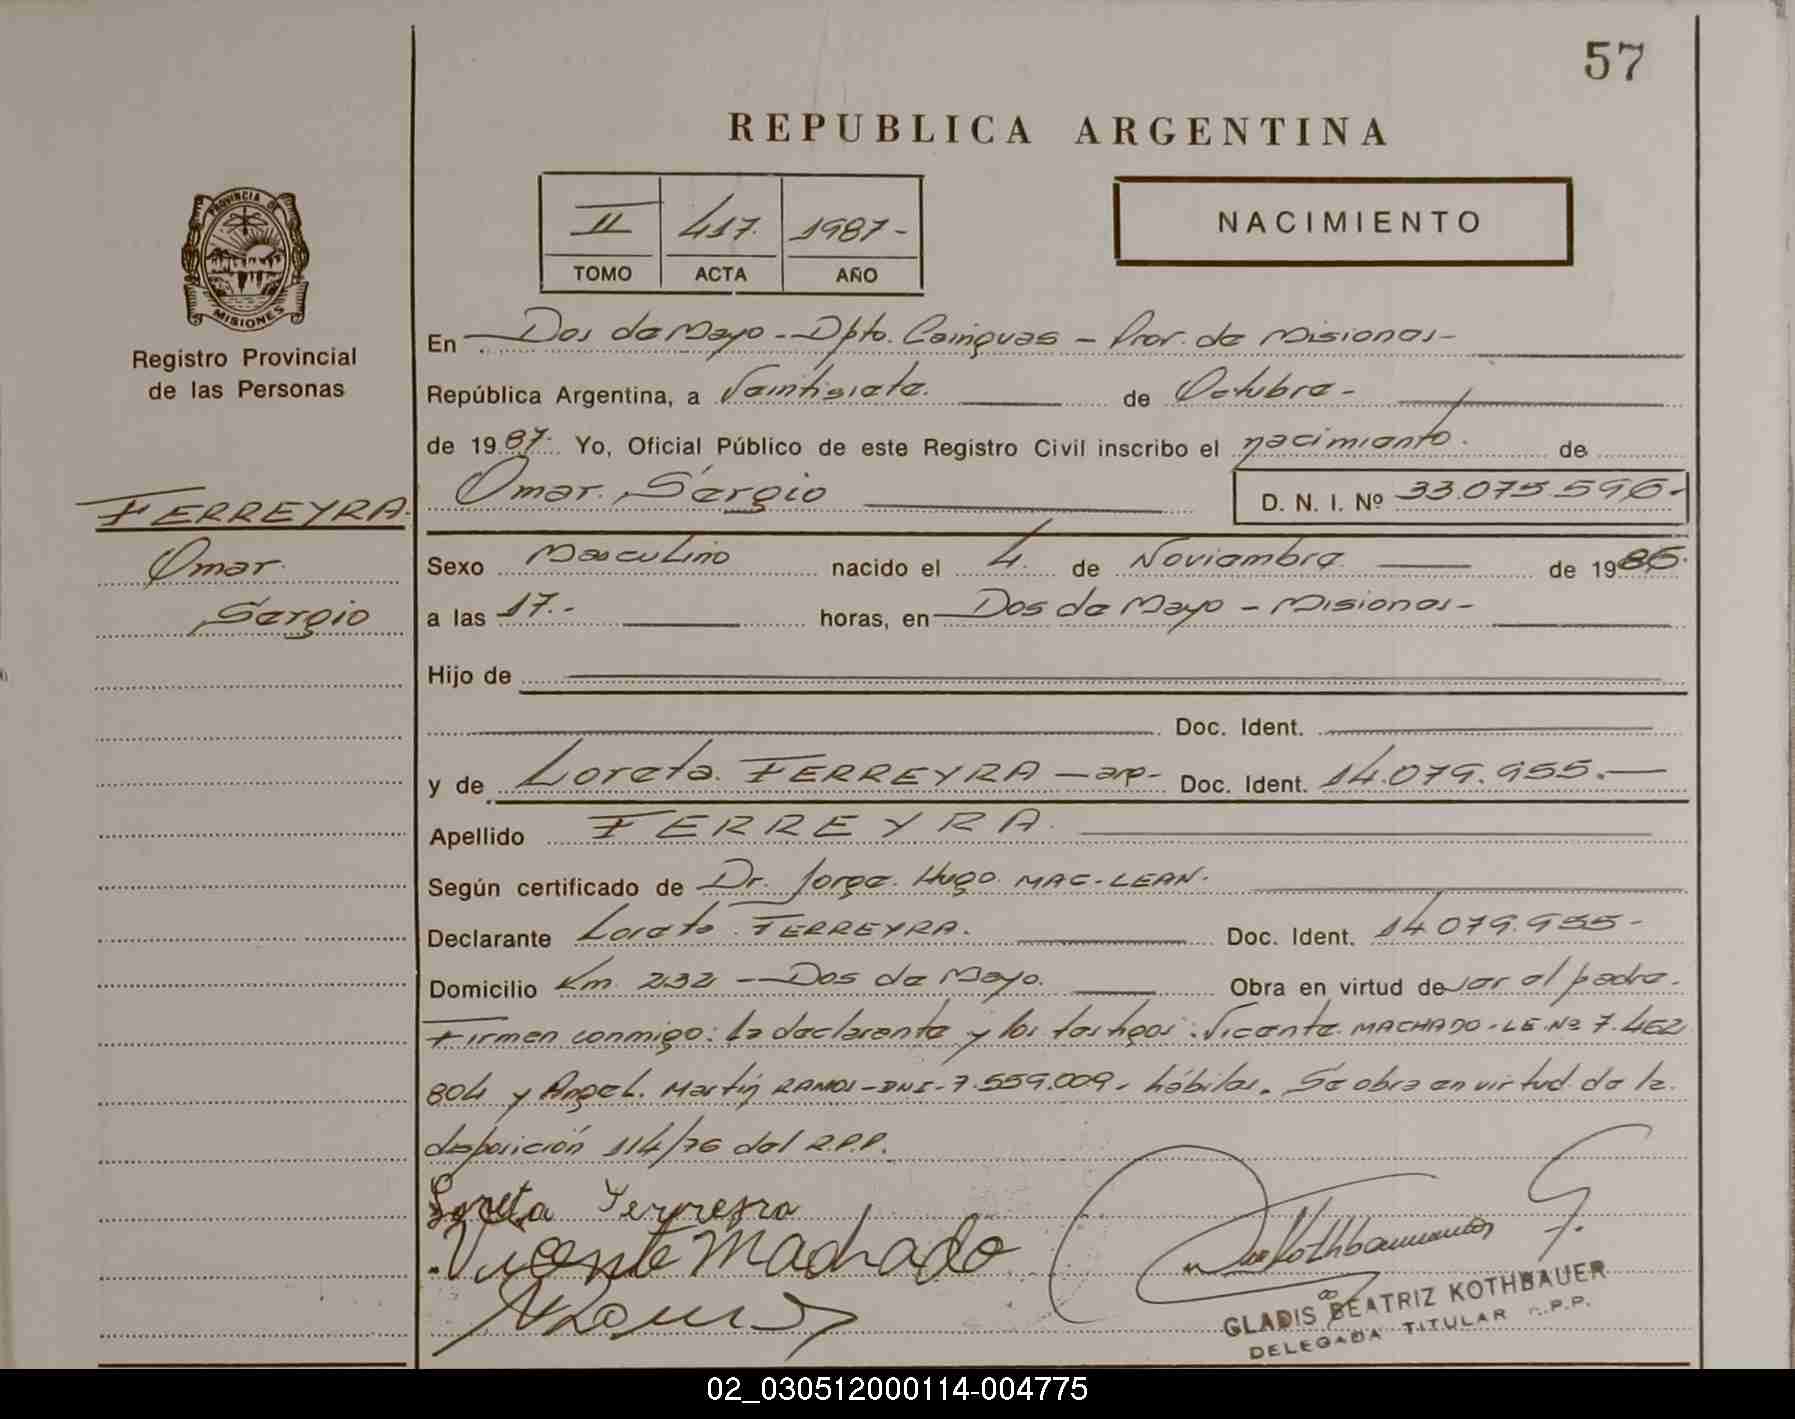 57
REPUBLICA ARGENTINA
II 417. 1987-
TOMO ACTA AÑO
NACIMIENTO
PROVINCIA DE
MISIONES
Registro Provincial
de las Personas
En Dos de Mayo - Dpto. Cainguas - Prov. de Misiones -
República Argentina, a Veintisiete. de Octubre -
de 1987. Yo, Oficial Público de este Registro Civil inscribo el nacimiento. de
Omar Sergio D. N. I. Nº 33.075.596-
FERREYRA.
Omar
Sergio
Sexo Masculino nacido el 4 de Noviembre de 1986.
a las 17.- horas, en Dos de Mayo - Misiones -
Hijo de
Doc. Ident.
y de Loreta. FERREYRA - arg- Doc. Ident. 14.079.955.-
Apellido FERREYRA.
Según certificado de Dr. Jorge Hugo MAC-LEAN.
Declarante Loreta FERREYRA. Doc. Ident. 14.079.955-
Domicilio Km 232 - Dos de Mayo. Obra en virtud de ser el padre.
Firman conmigo: la declarante y los testigos: Vicente MACHADO - LE Nº 7.462
804 y Angel Martín RAMOS - DNI - 7.559.009 - hábiles. Se obra en virtud de la
disposición 114/76 del R.P.P.
Loreta Ferreyra
Vicente Machado
GLADIS BEATRIZ KOTHBAUER
DELEGADA TITULAR R.P.P.
02_030512000114-004775